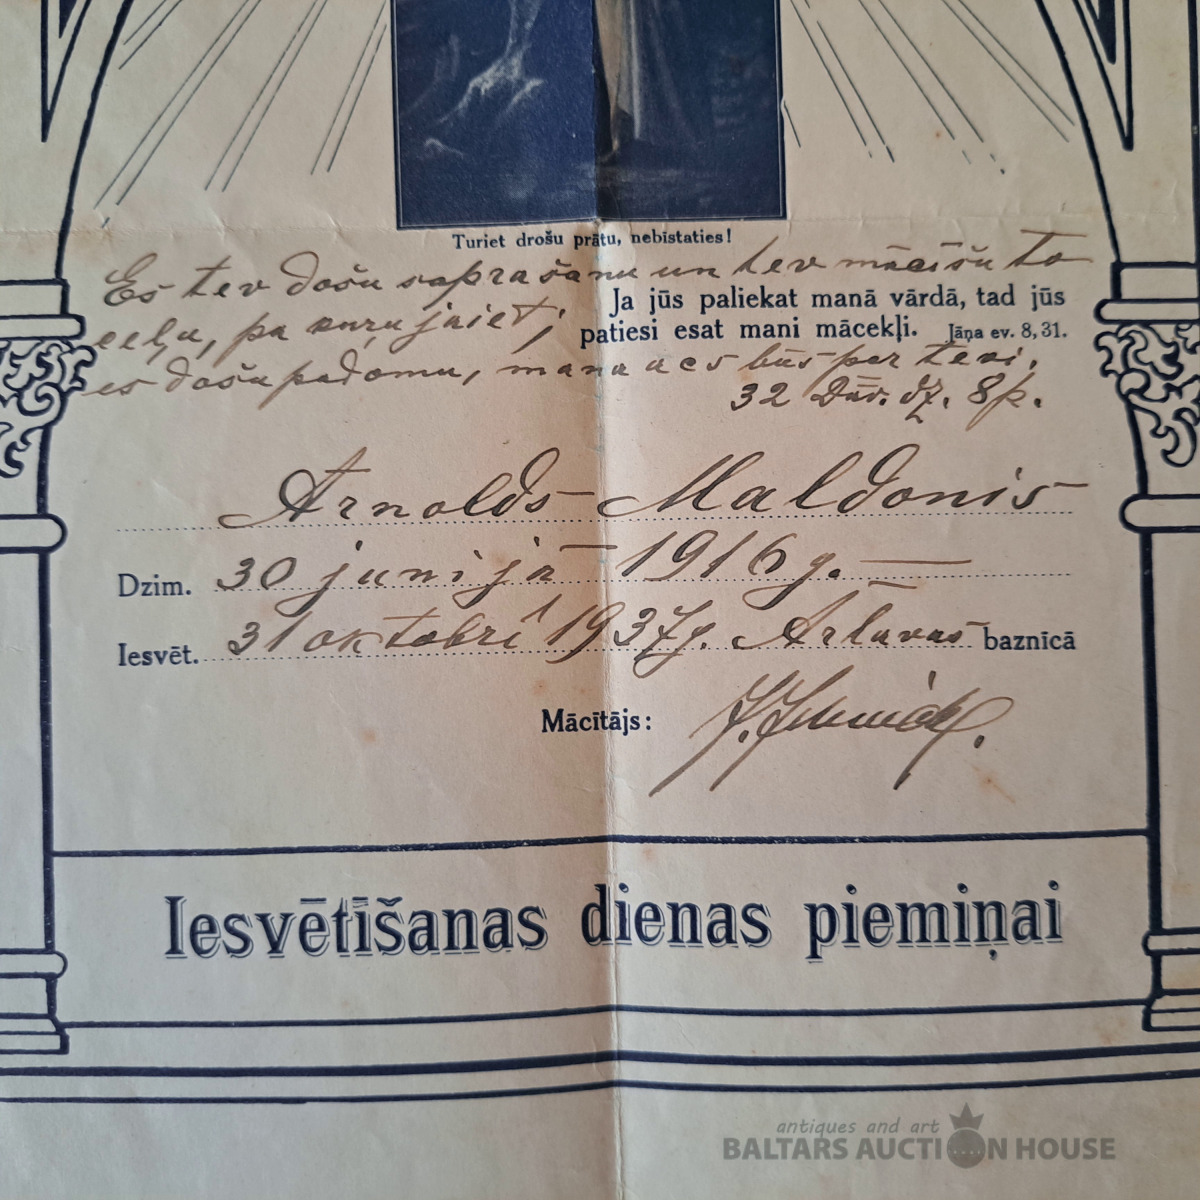 Turiet drošu prātu, nebīstaties!
Es tev došu saprašanu un tev mācīšu to
ceļu, pa kuru jāiet;
Ja jūs paliekat manā vārdā, tad jūs
patiesi esat mani mācekļi. Jāņa ev. 8, 31.
es došu padomu, mana acs būs par tevi.
32 Dāv. dz. 8 p.
Arnolds Maldonis
Dzim. 30 junijā 1916 g.
Iesvēt. 31 oktobrī 1937 g. baznīcā
Mācītājs:
Iesvētīšanas dienas piemiņai
antiques and art
BALTARS AUCTION HOUSE